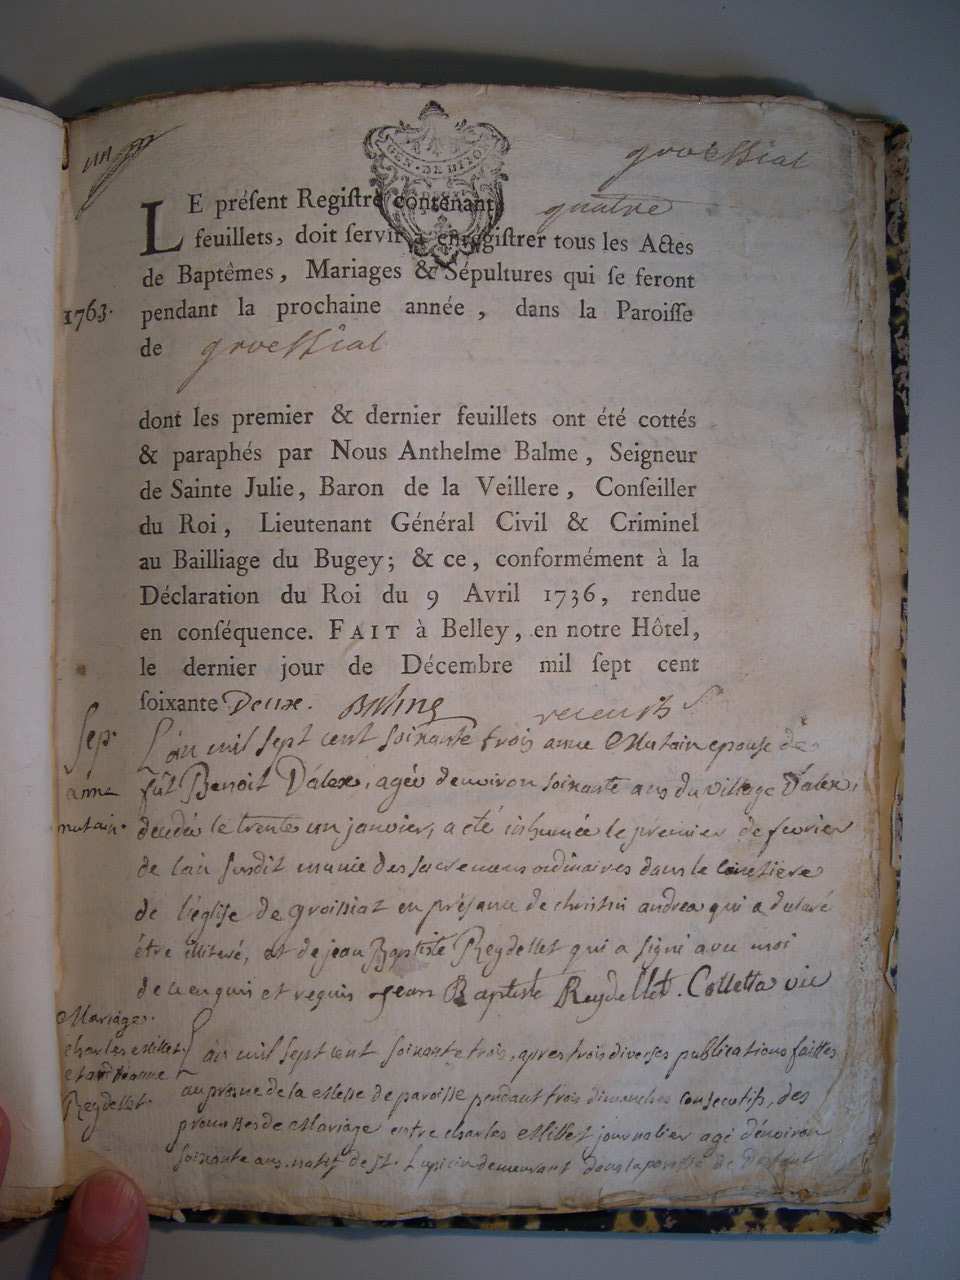 groissiat
GEN. DE DIJON
LE préſent Regiſtre contenant quatre
feuillets, doit ſervir à enregiſtrer tous les Actes
de Baptêmes, Mariages & Sépultures qui ſe feront
1763. pendant la prochaine année, dans la Paroiſſe
de groissiat
dont les premier & dernier feuillets ont été cottés
& paraphés par Nous Anthelme Balme, Seigneur
de Sainte Julie, Baron de la Veillere, Conſeiller
du Roi, Lieutenant Général Civil & Criminel
au Bailliage du Bugey; & ce, conformément à la
Déclaration du Roi du 9 Avril 1736, rendue
en conſéquence. FAIT à Belley, en notre Hôtel,
le dernier jour de Décembre mil ſept cent
ſoixante Deux. Balme
Sep.
anne
mutain.
L'an mil sept cent soixante trois anne Mutain epouse de
fût Benoit D'alex, agée denviron soixante ans du village D'alex,
decedée le trente un janvier, a eté inhumée le premier de fevrier
de l'an susdit munie des sacremens ordinaires dans le cimetiere
de l'église de groissiat en présence de christin andrea qui a declaré
être illiteré, et de jean Baptiste Reydellet qui a signé avec moi
de ce enquis et requis jean Baptiste Reydellet. Colletta vic
Mariage.
charles Millet
et
Reydellet.
L'an mil sept cent soixante trois, apres trois diverses publications faittes
au prosne de la Messe de paroisse pendant trois dimanches consecutifs, des
promesses de Mariage entre charles Millet journalier agé d'environ
soixante ans natif de st. Lupicin demeurant dans la paroisse de